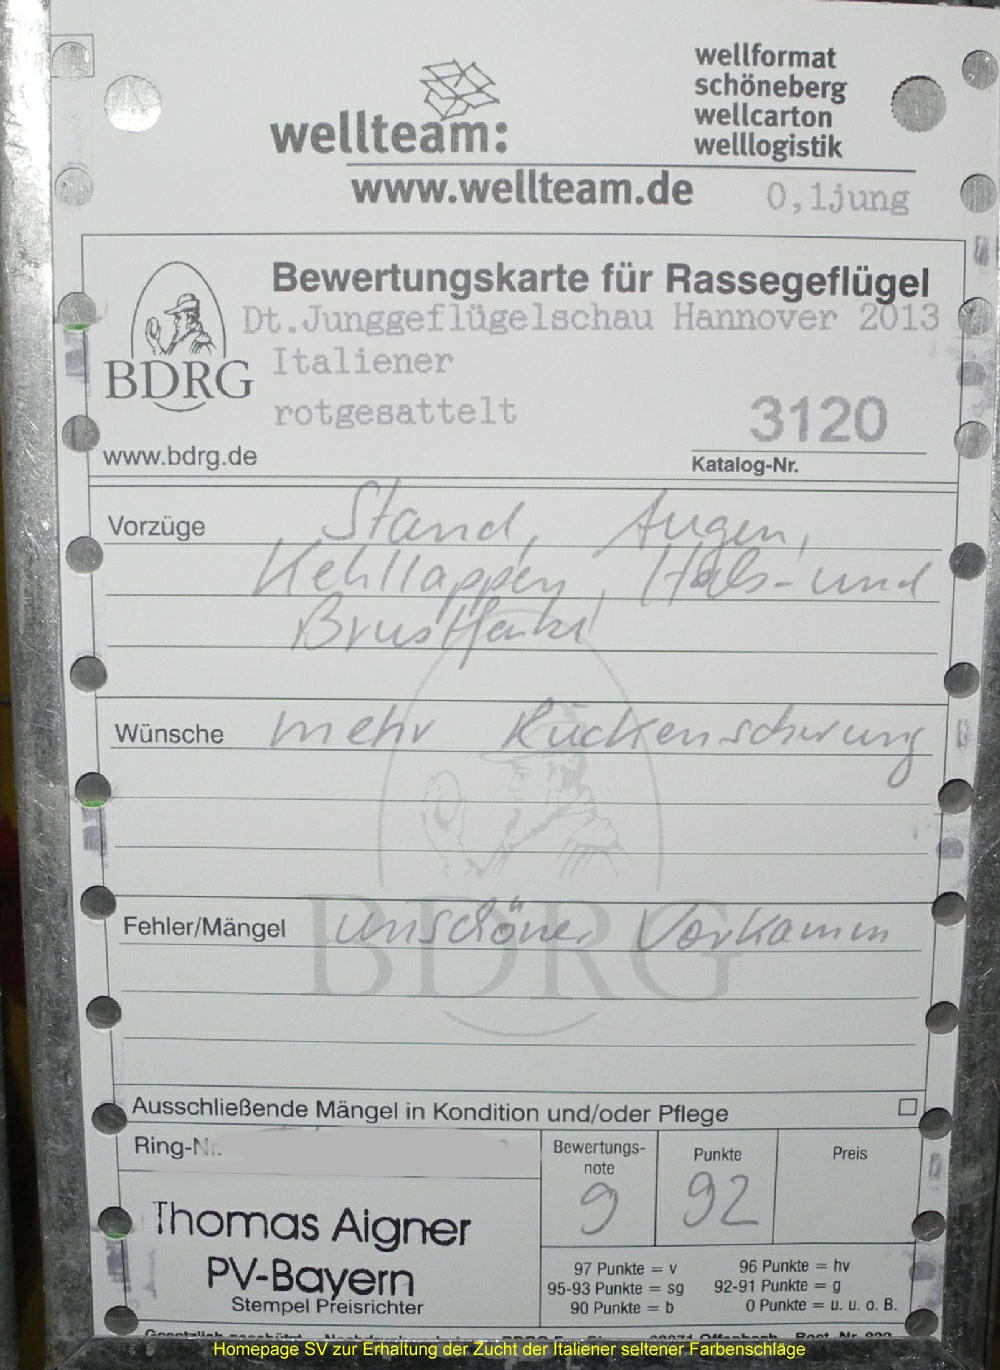 wellteam:
wellformat
schöneberg
wellcarton
welllogistik
www.wellteam.de
0,1jung
Bewertungskarte für Rassegeflügel
Dt.Junggeflügelschau Hannover 2013
BDRG
Italiener
rotgesattelt
3120
www.bdrg.de
Katalog-Nr.
Vorzüge Stand, Augen,
Kehllappen, Hals- und
Brustfarbe
Wünsche mehr Rückenschwung
BDRG
Fehler/Mängel unschöner Vorkamm
Ausschließende Mängel in Kondition und/oder Pflege
Ring-Nr.
Bewertungs-
note
Punkte
Preis
g
92
Thomas Aigner
PV-Bayern
Stempel Preisrichter
97 Punkte = v 96 Punkte = hv
95-93 Punkte = sg 92-91 Punkte = g
90 Punkte = b 0 Punkte = u. u. o. B.
Homepage SV zur Erhaltung der Zucht der Italiener seltener Farbenschläge